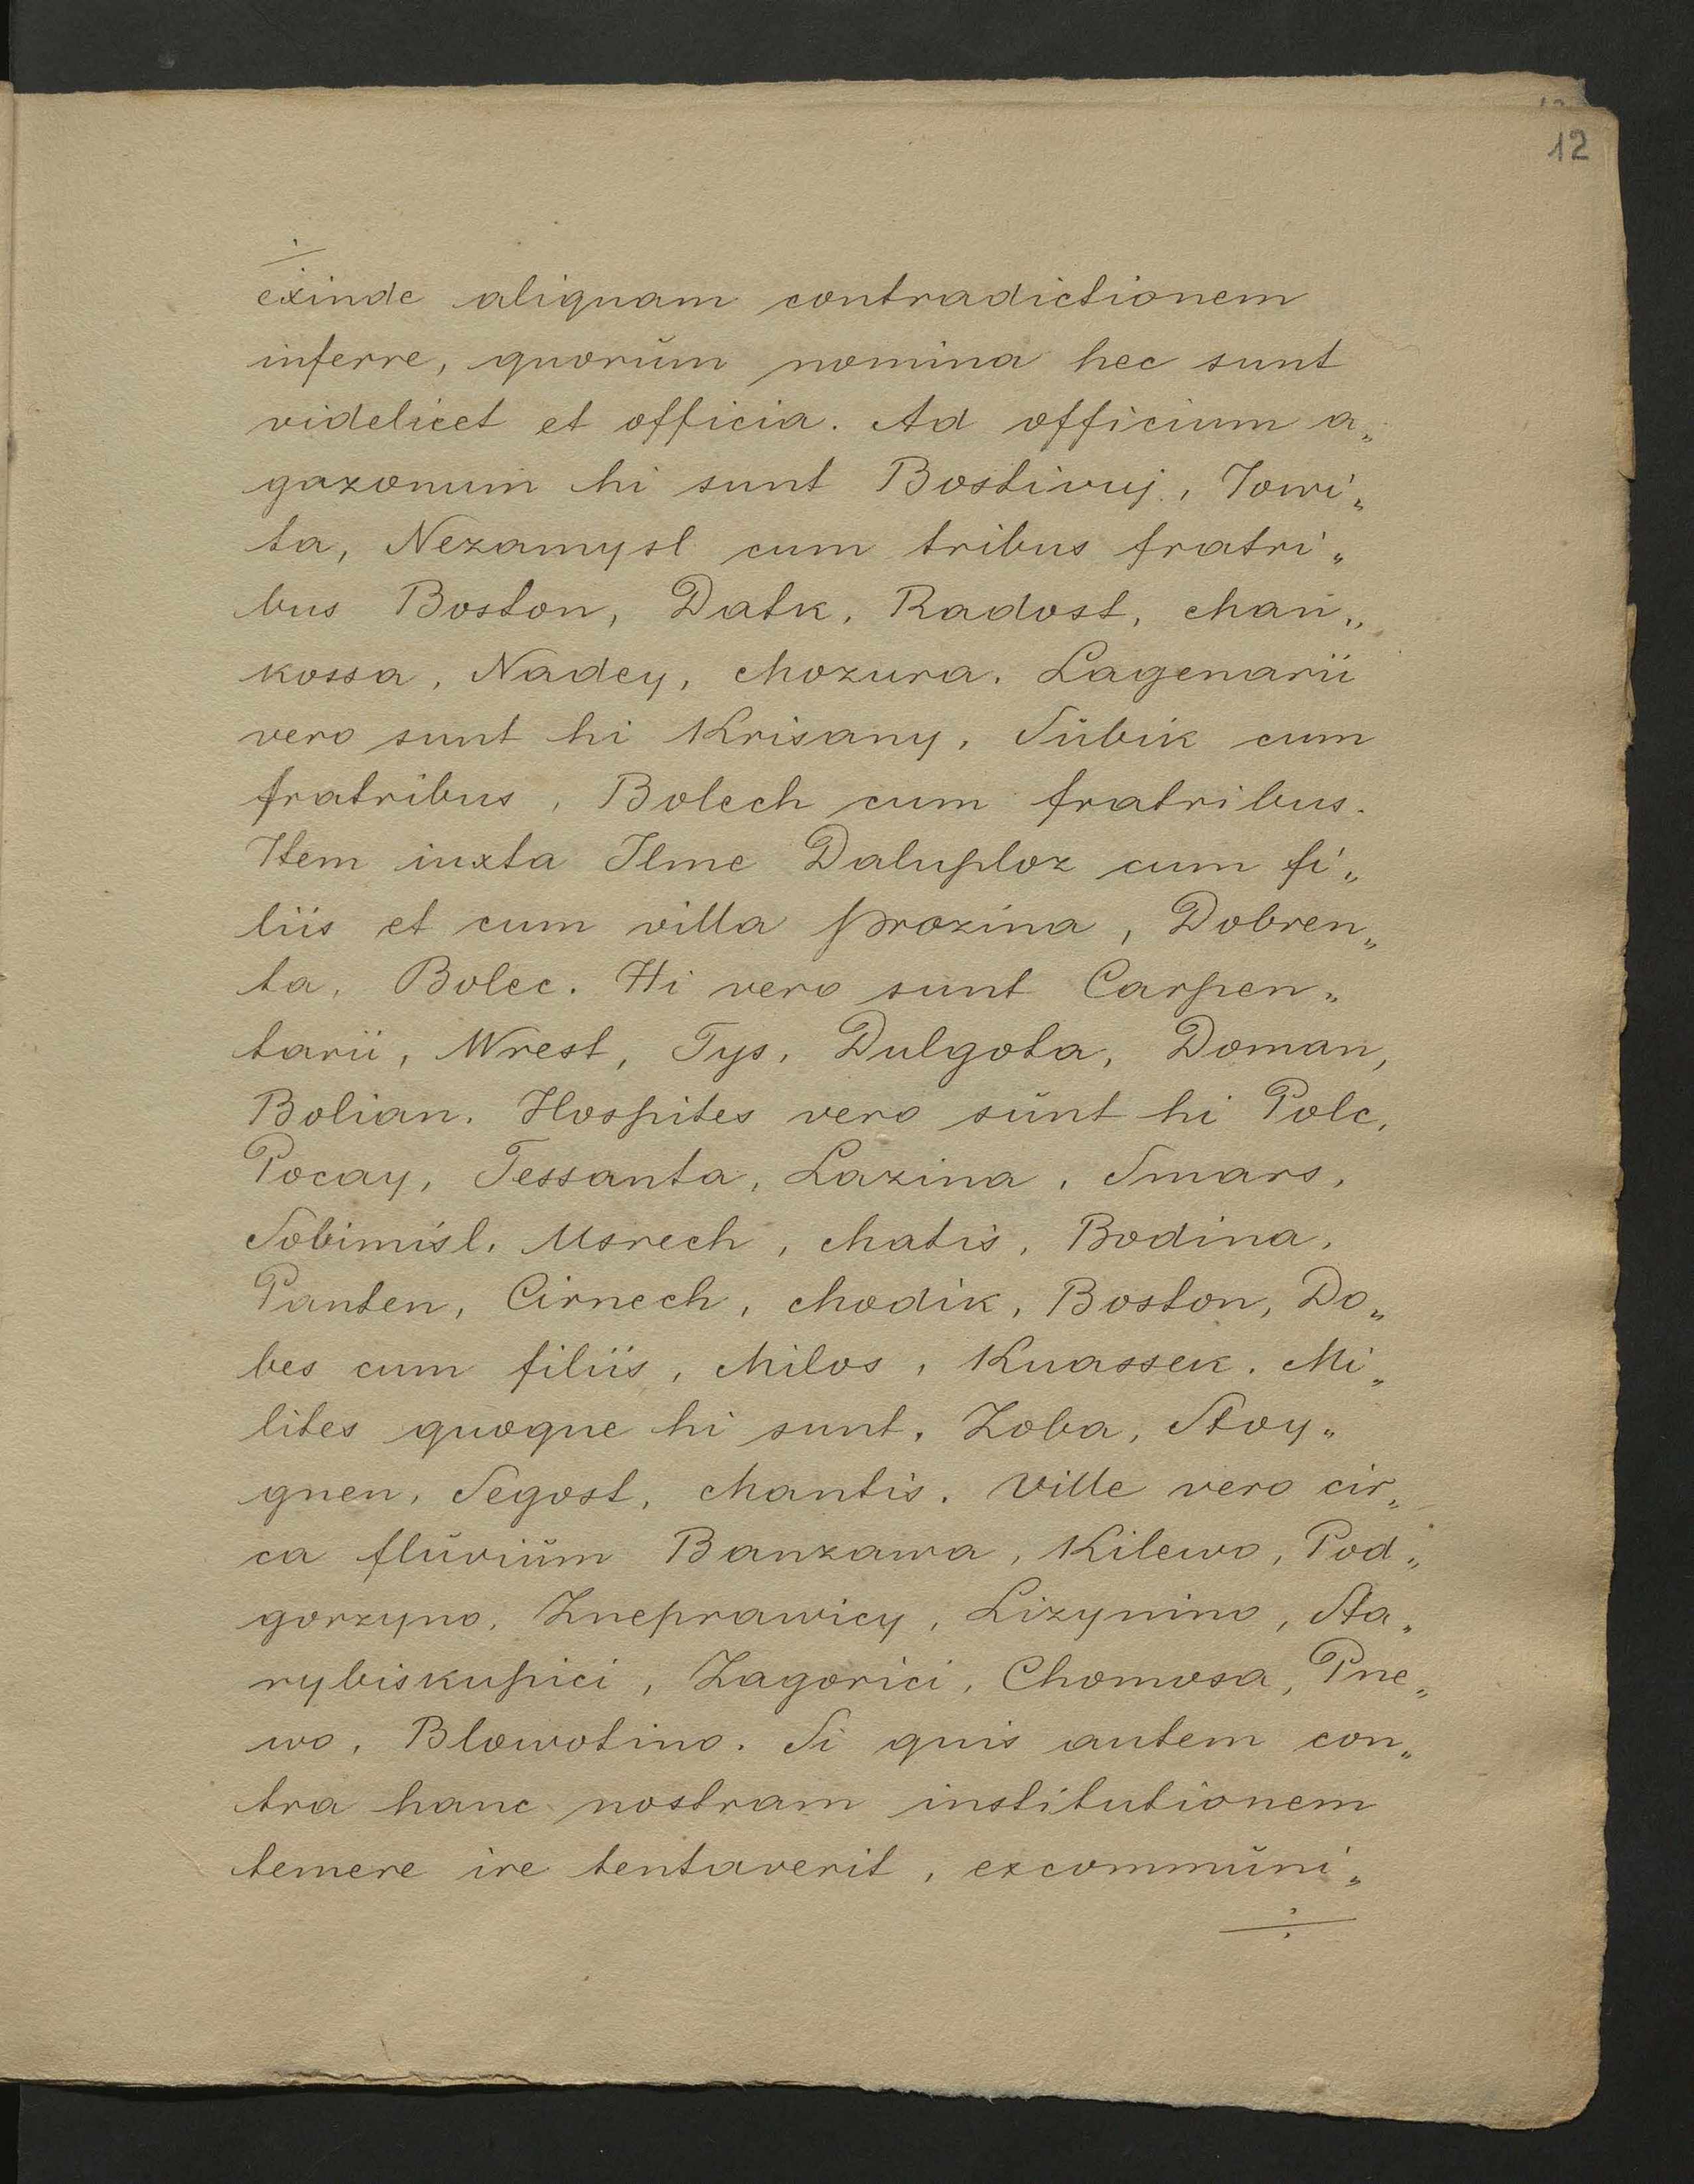 12
exinde aliquam contradictionem
inferre, quorŭm nomina hec sunt
videlicet et officia. Ad officium a„
gazonum hi sunt Bostivuj, Jowi„
ta, Nezamysl cum tribus fratri„
bus Boston, Datk, Radost, Mań„
kossa, Nadey, Mozura. Lagenarii
vero sunt hi Krisany, Sŭbik cum
fratribus, Bolech cum fratribus.
Item iuxta Ilme Daluploz cum fi„
liis et cum villa prozina, Dobren„
ta, Bolec. Hi vero sunt Carpen„
tarii, Wrest, Tys, Dulgota, Doman,
Bolian. Hospites vero sŭnt hi Polc,
Pocay, Tessanta, Lazina, Smars,
Sobimisl. Msrech, Matis, Bodina,
Panten, Cirnech, Modik, Boston, Do„
bes cum filiis, Milos, Kuassek. Mi„
lites quoque hi sunt, Zoba, Stoy„
gnen, Segost, Mantis. Ville vero cir„
ca flŭviŭm Banzawa, Kilewo, Pod„
gorzyno, Zneprawicy, Lizynino, Sta„
rybiskupici, Zagorici, Chomosa, Pne„
wo, Blowotino. Si quis autem con„
tra hanc nostram institutionem
temere ire tentaverit, excommŭni„